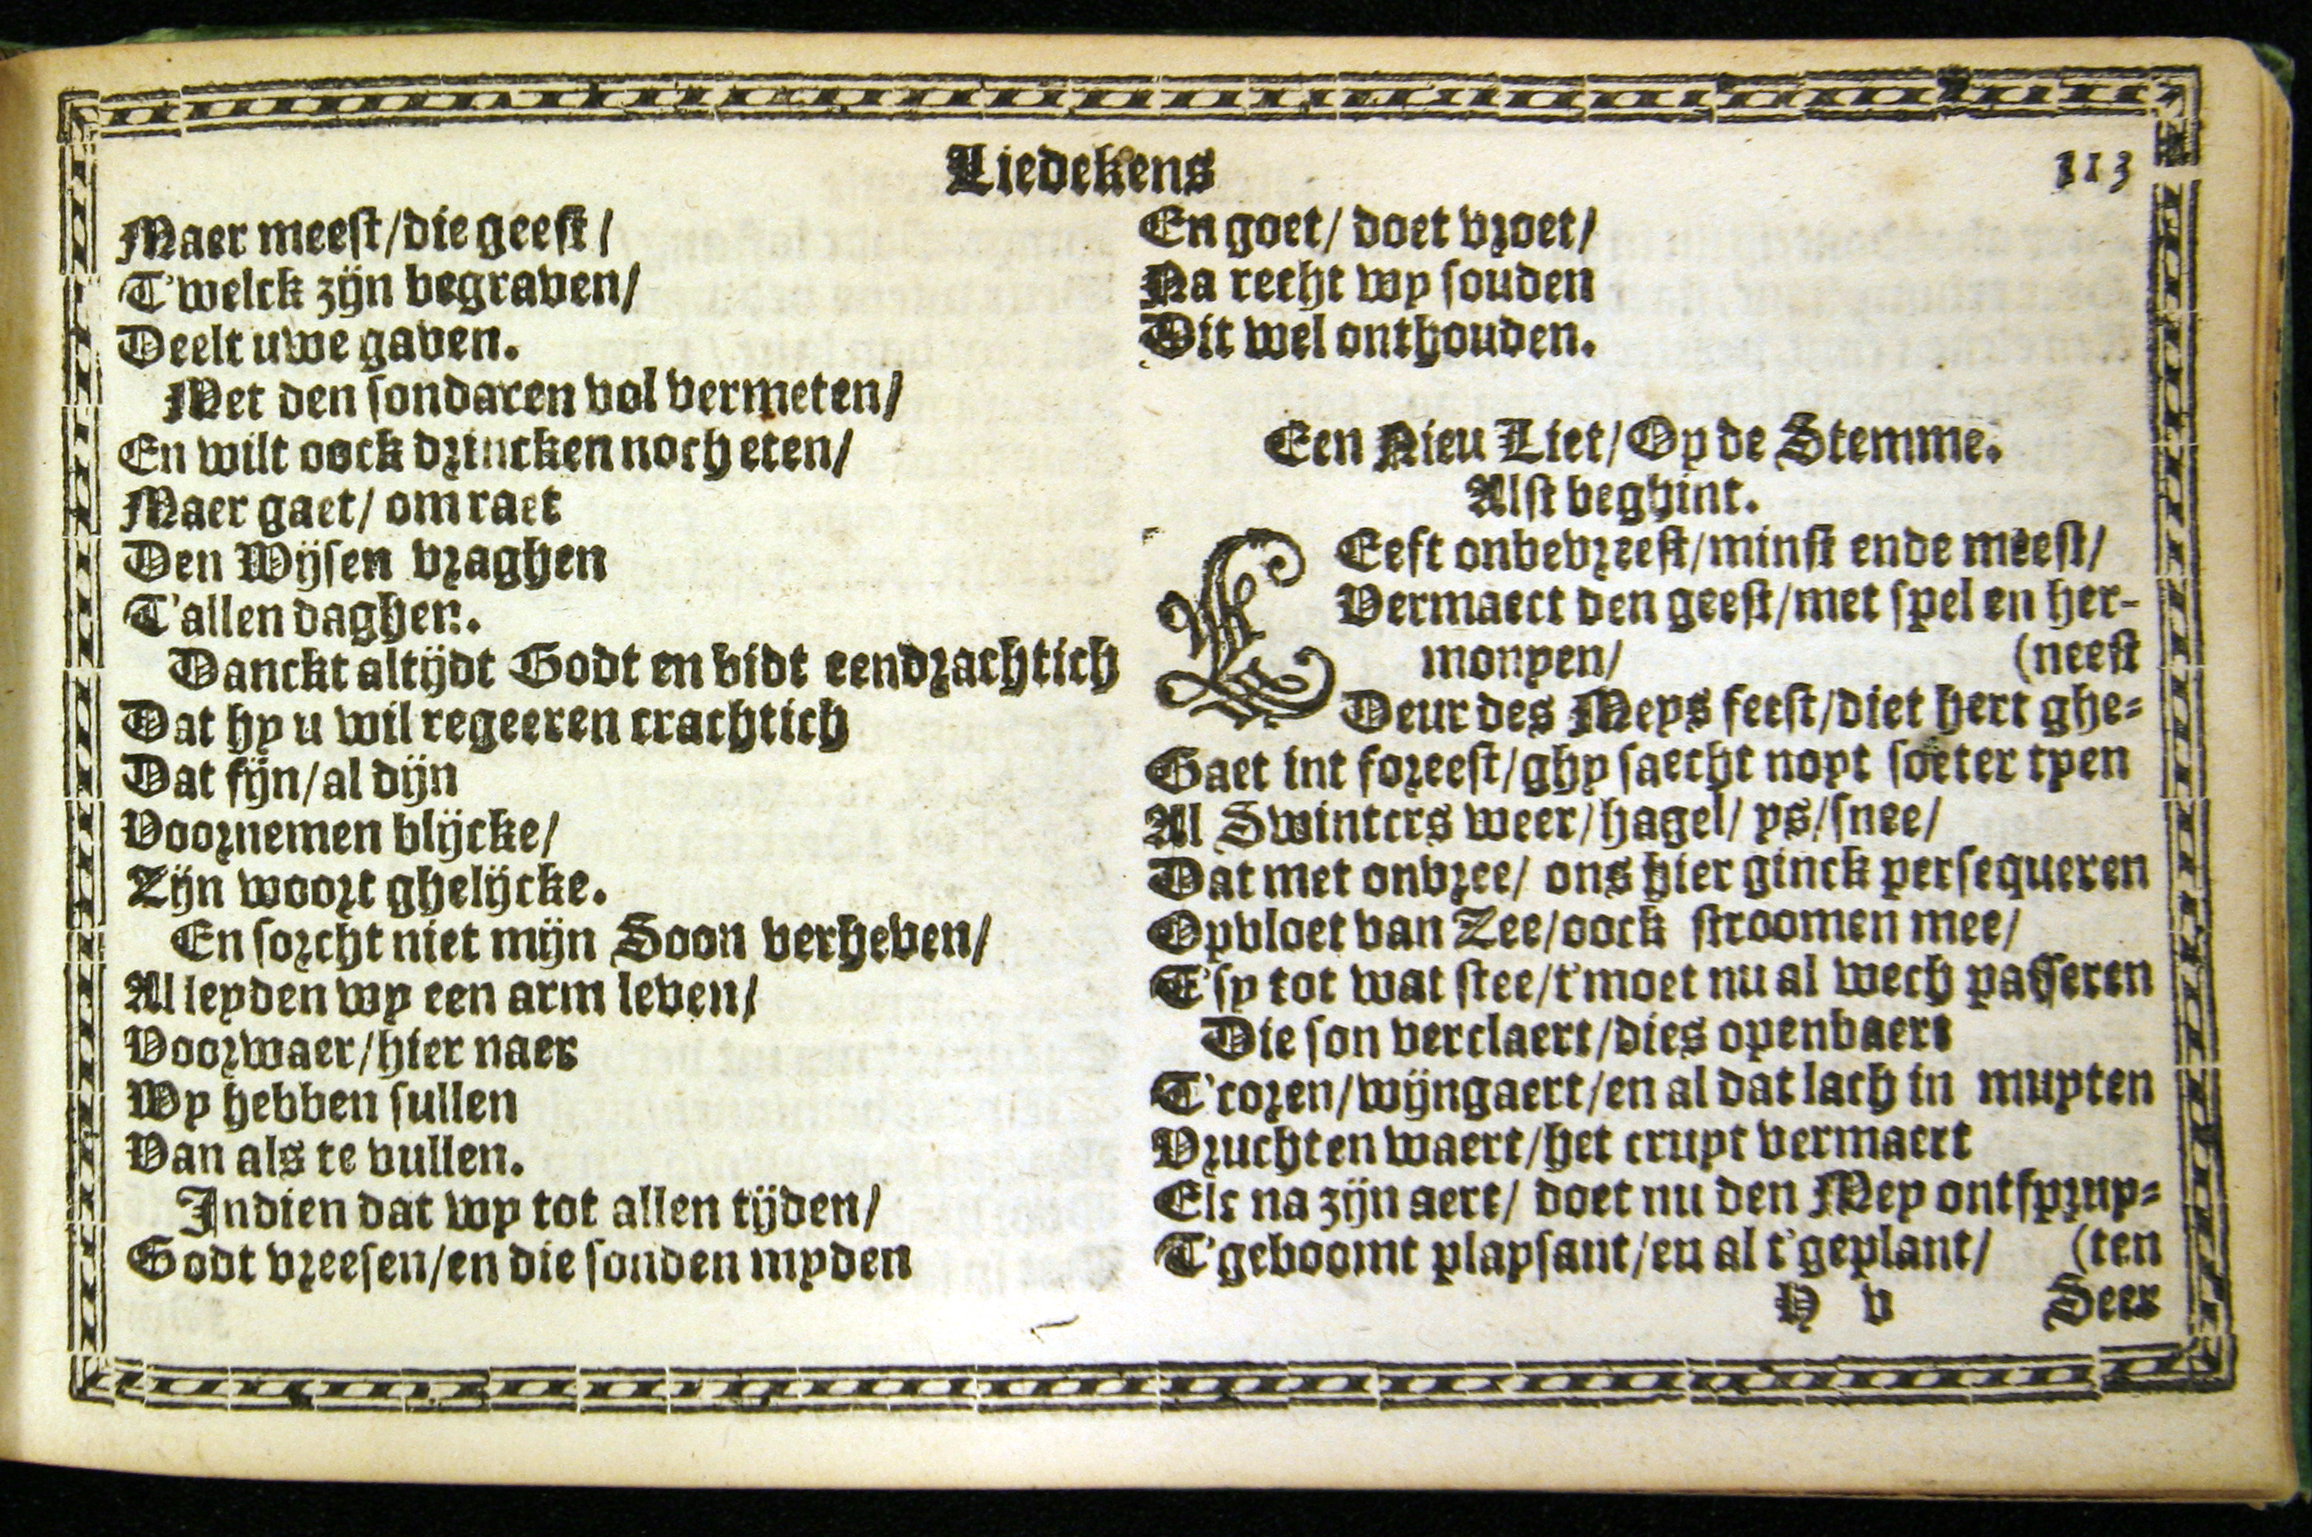 Liedekens
113
Maer meest/die geest/
T'welck zijn begraven/
Deelt uwe gaven.
Met den sondaren vol vermeten/
En wilt oock drincken noch eten/
Maer gaet/ om raet
Den Wijsen vraghen
T'allen daghen.
Danckt altijdt Godt en bidt eendrachtich
Dat hy u wil regeeren crachtich
Dat fijn/al dijn
Voornemen blijcke/
Zijn woort ghelijcke.
En sorcht niet mijn Soon verheven/
Al leyden wy een arm leven/
Voorwaer/hier naer
Wy hebben sullen
Van als te vullen.
Indien dat wy tot allen tijden/
Godt vreesen/en die sonden myden
En goet/ doet vroet/
Na recht wy souden
Dit wel onthouden.
Een Nieu Liet/Op de Stemme.
Alst beghint.
LEeft onbevreest/minst ende meest/
Vermaect den geest/met spel en her-
monyen/ (neest
Deur des Meys feest/diet hert ghe-
Gaet int foreest/ghy saecht noyt soeter tyen
Al Swinters weer/hagel/ ys/snee/
Dat met onvree/ ons hier ginck persequeren
Opvloet van Zee/oock stroomen mee/
T'sy tot wat stee/t'moet nu al wech passeren
Die son verclaert/dies openbaert
T'coren/wijngaert/en al dat lach in muyten
Vruchten waert/het cruyt vermaert
Elc na zijn aert/ doet nu den Mey ontspruy-
T'geboomt playsant/en al t'geplant/ (ten
H v Seer